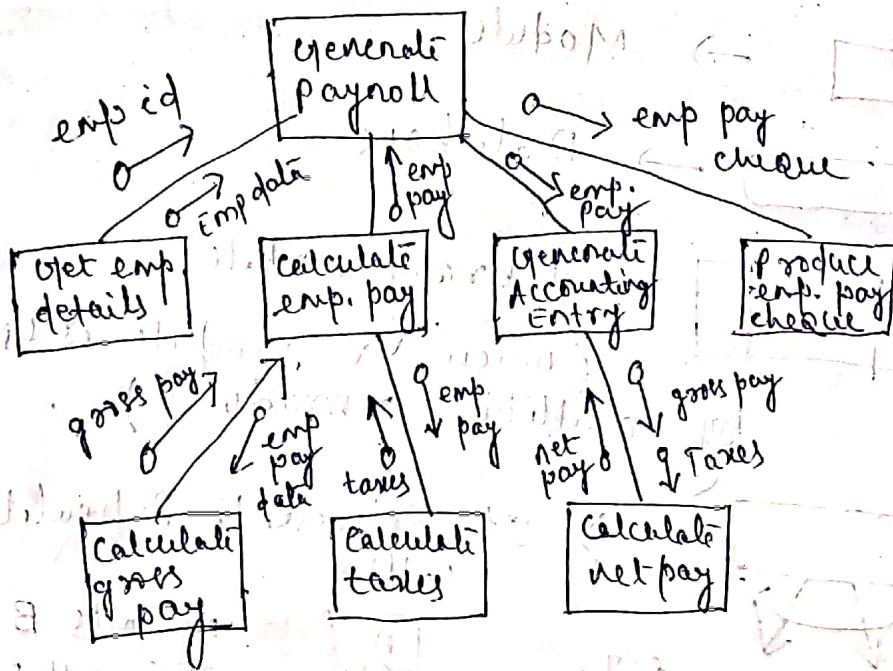 Generate
Payroll
emp id
Emp data
emp
pay
emp.
pay
emp pay
cheque
Get emp
details
Calculate
emp. pay
Generate
Accounting
Entry
Produce
emp. pay
cheque
gross pay
emp
pay
data
taxes
emp
pay
net
pay
gross pay
Taxes
Calculate
gross
pay
Calculate
taxes
Calculate
net pay
Module